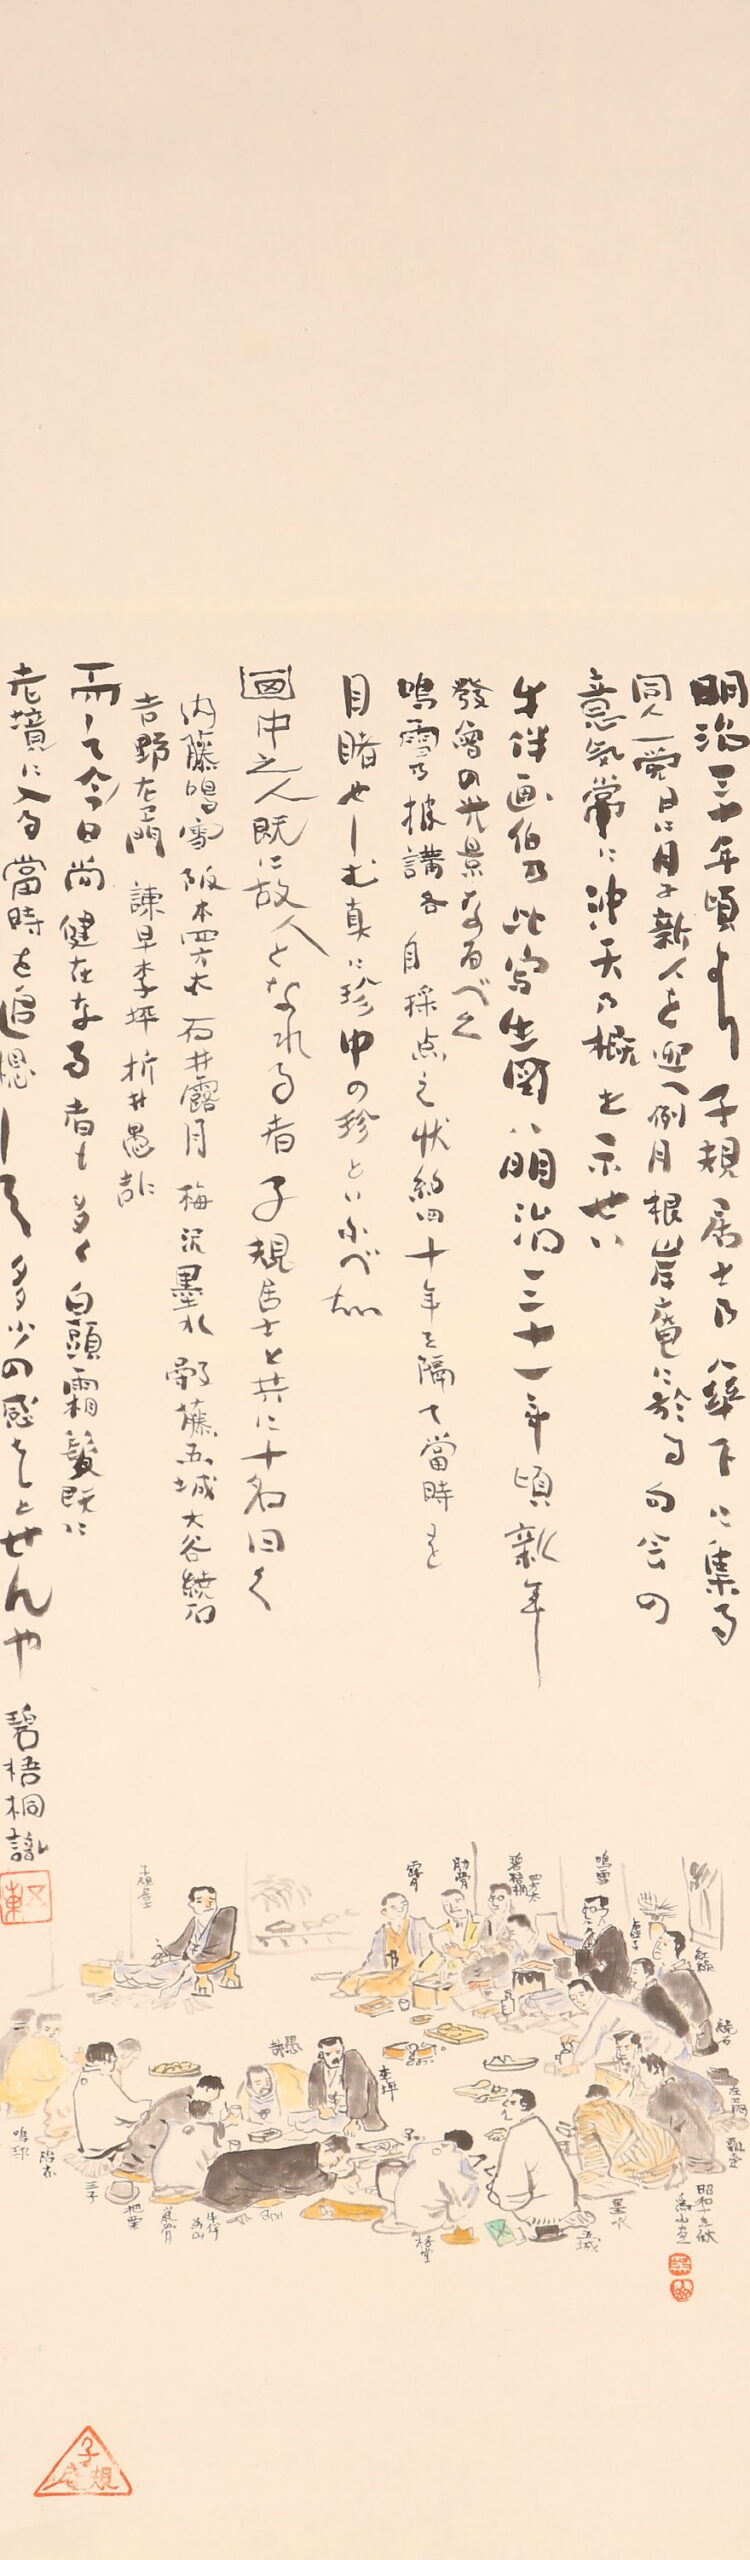 明治三十年頃より子規居士乃八華下に集る
同人一党日に月に新人を迎へ例月根岸庵に於る句会の
意気常に沖天乃概を示せい
牛伴画伯乃此写生図ハ明治三十一年頃新年
發會の光景なるべく
鳴雪乃披講各自採点之状約四十年を隔て當時を
目睹せしむ真に珍中の珍といふべ
図中之人既に故人となれる者子規居士と共に十名曰く
内藤鳴雪 阪本四方太 石井露月 梅沢墨水 數藤五城 大谷繞石
吉野左衛門 諫早李坪 折井愚哉
而して今日尚健在なる者も多く白頭霜髪既に
老境に入る當時を追憶して多少の感なしとせんや
碧梧桐識
子規居士
露月
肋骨
碧梧桐
四方太
鳴雪
虚子
紅緑
繞石
左衛門
愚哉
李坪
鳴球
三子
把栗
鼠骨
牛伴
為山
格堂
五城
墨水
昭和十一秋
為山画
子規庵